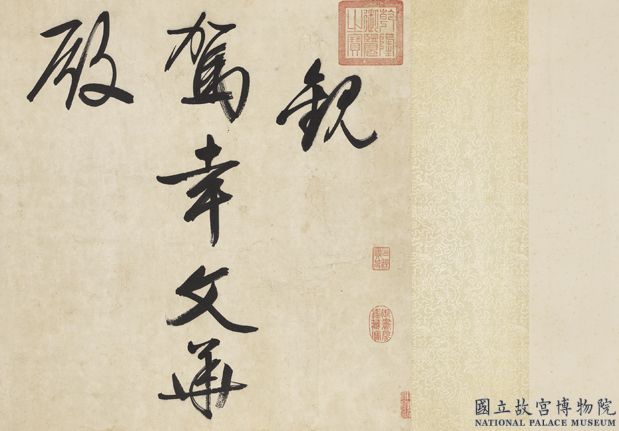 觀
駕幸文華
殿
乾隆御覽之寶
國立故宮博物院
NATIONAL PALACE MUSEUM